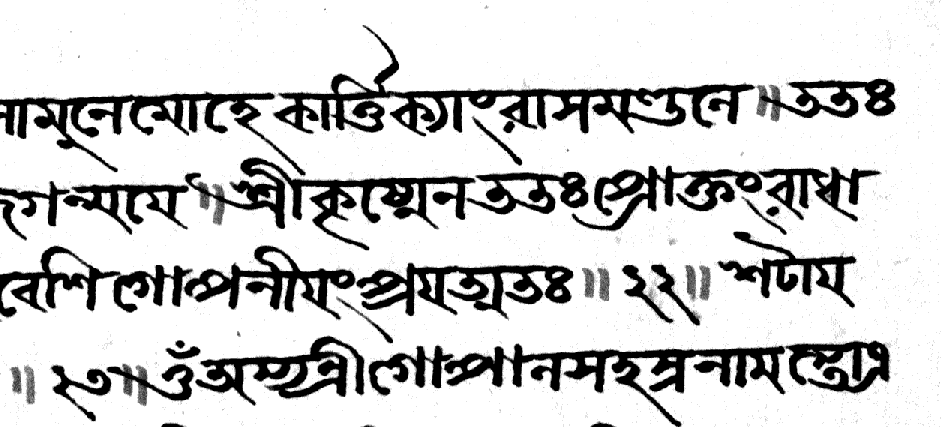 মোহে কার্ত্তিক্যাং রাসমণ্ডলে ॥ ততঃ
জগন্ময়ে ॥ শ্রীকৃষ্ণেন ততঃ প্রোক্তং রাধা
বেশি গোপনীয়ং প্রযত্নতঃ ॥ ২২ ॥ শঠায়
॥ ২৩ ॥ ওঁ অস্য শ্রীগোপালসহস্রনামস্তোত্র